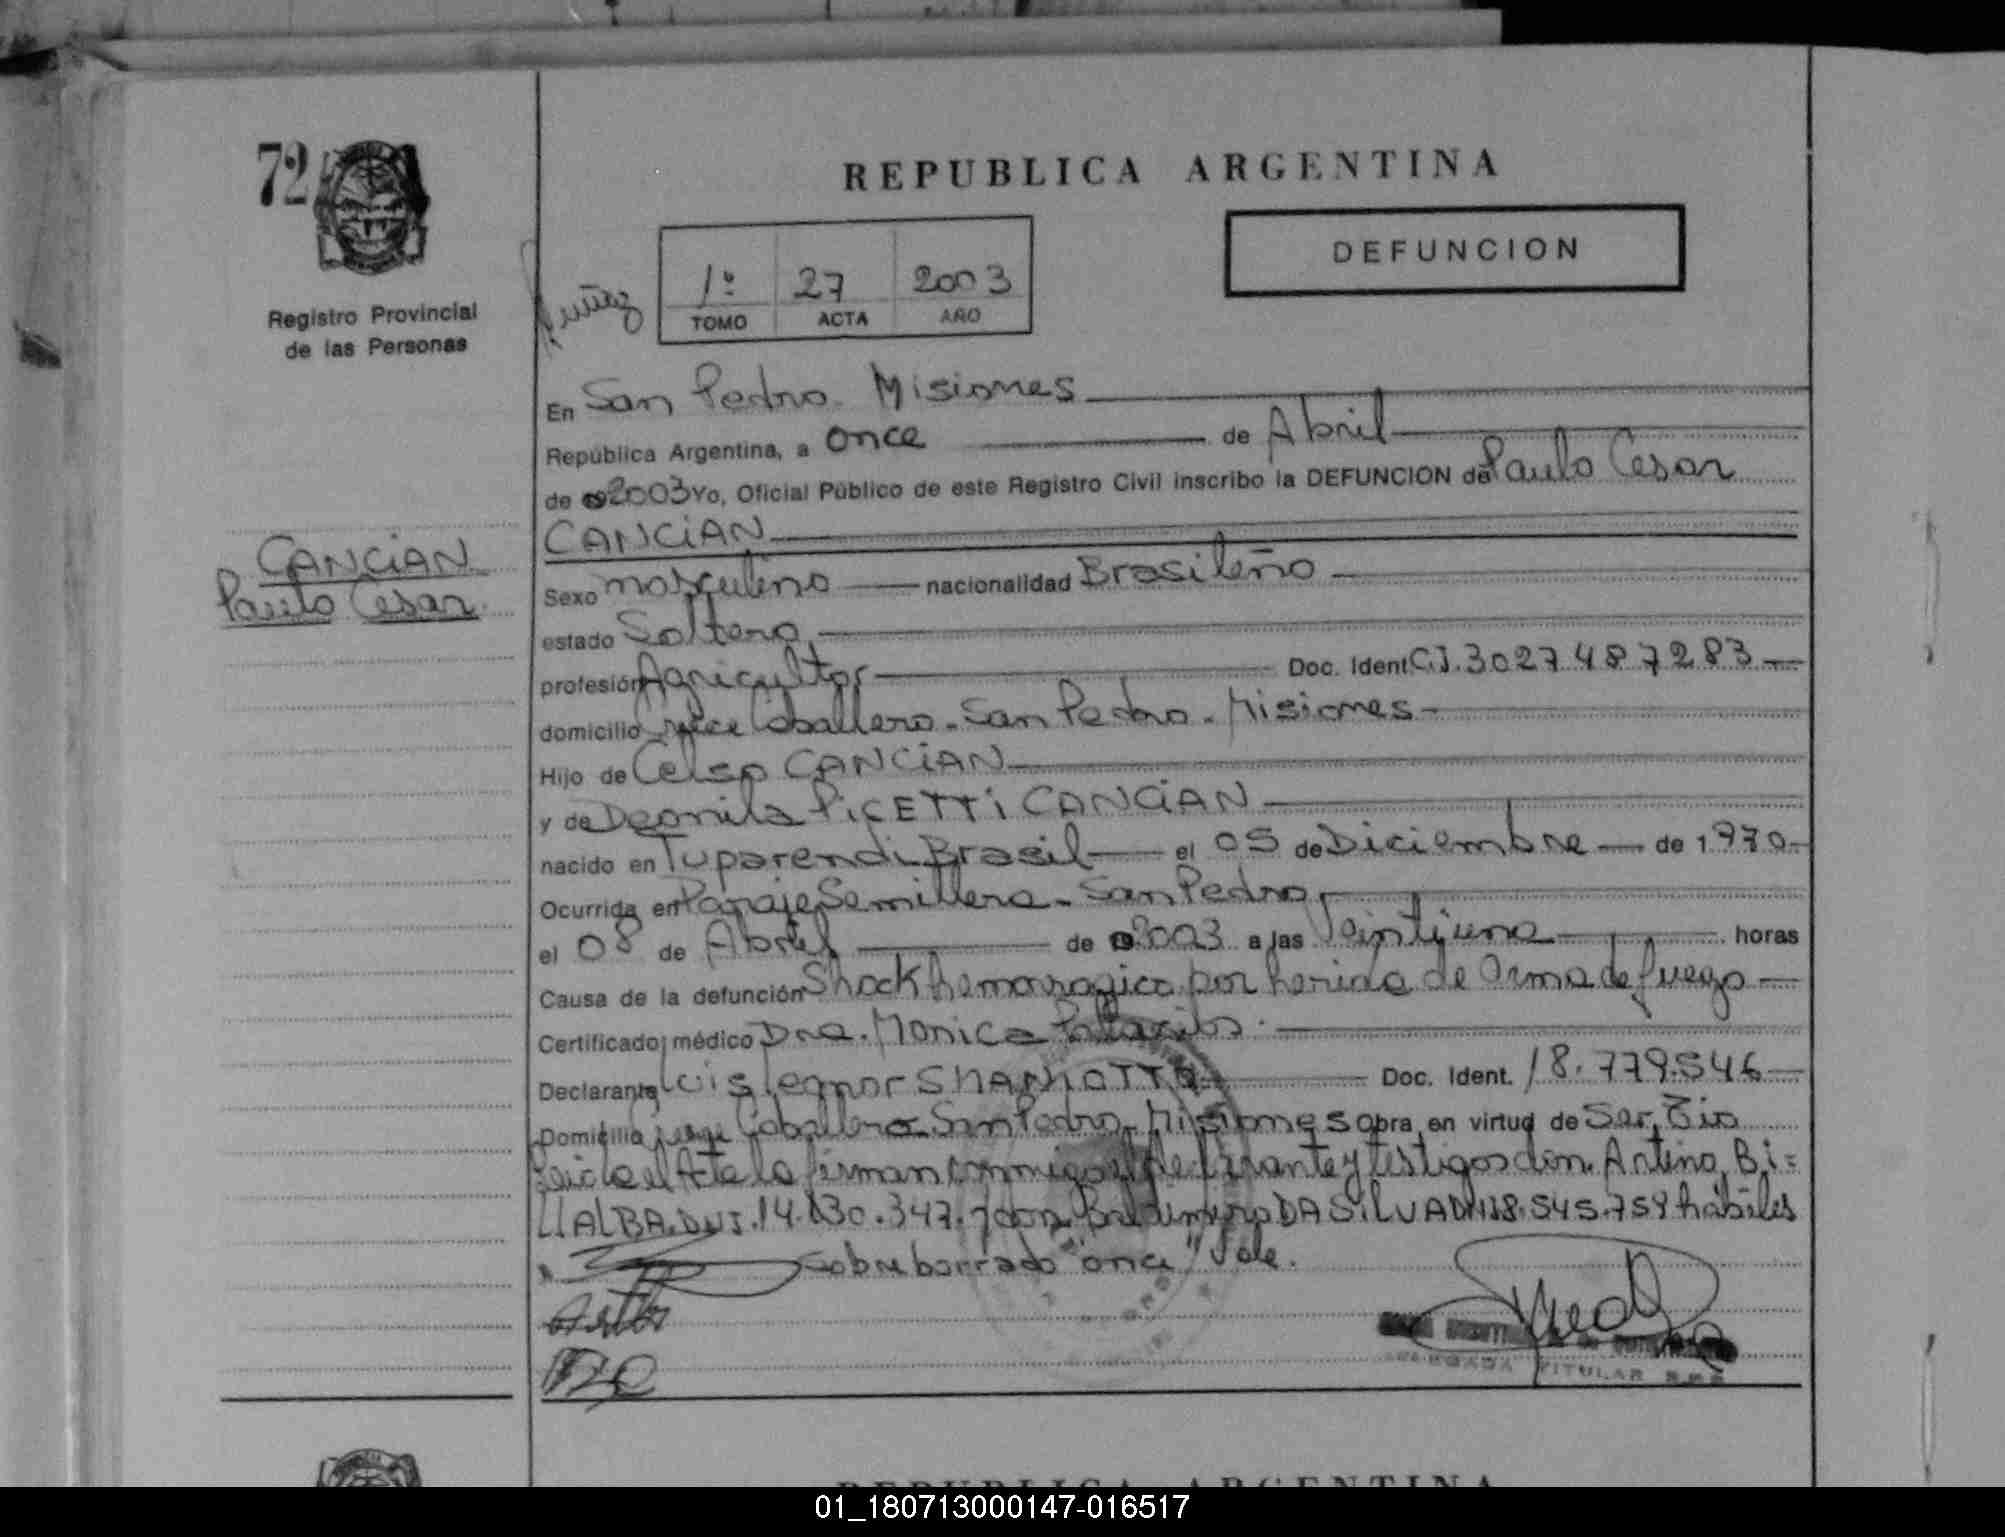 72
REPUBLICA ARGENTINA
DEFUNCION
1º 27 2003
TOMO ACTA AÑO
Registro Provincial
de las Personas
En San Pedro. Misiones
República Argentina, a once de Abril
de 2003 Yo, Oficial Público de este Registro Civil inscribo la DEFUNCION de Paulo Cesar
CANCiAN
CANCiAN
Paulo Cesar
Sexo masculino nacionalidad Brasileño
estado Soltero
profesión Agricultor Doc. Ident. C.I. 3027487283
domicilio Caballero - San Pedro - Misiones
Hijo de Celso CANCiAN
y de Deonila PiCETTi CANCiAN
nacido en Tuparendi Brasil el 05 de Diciembre de 1.970
Ocurrida en Paraje Semillero - San Pedro
el 08 de Abril de 2003 a las Veintiuna horas
Causa de la defunción Shock hemorragico por herida de Arma de fuego
Certificado médico Dra. Monica
Declarante Luis Leonor Doc. Ident. 18.779.546
Domicilio Caballero San Pedro - Misiones obra en virtud de Ser. Tio
Leida el Acta la firman conmigo el declarante y testigos don. Artino Bi=
LLALBA. DNI. 14.830.347. y don DA SiLVA DNI 18.545.759 hábiles
Sobreborrado "once" Vale.
TITULAR
REPUBLICA ARGENTINA
01_180713000147-016517